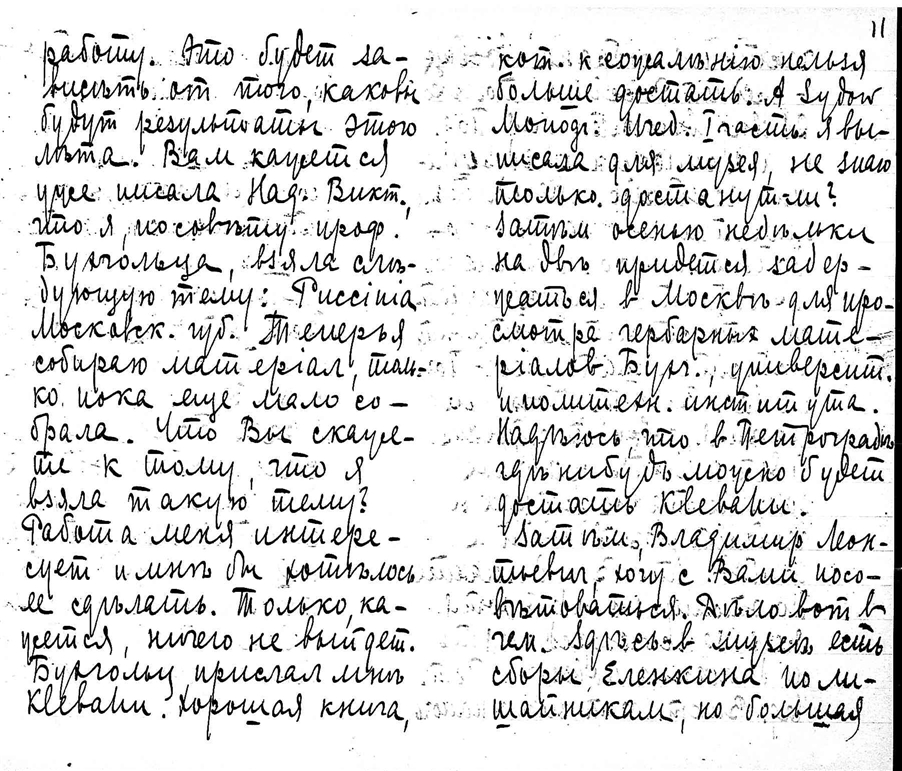 11
работу. Это будет за-
висѣть от того, каковы
будут результаты этого
лѣта. Вам кажется
уже писала Над. Викт.,
что я, по совѣту проф.
Бухгольца, взяла слѣ-
дующую тему: Puccinia
Московск. губ. Теперь я
собираю матеріал, толь-
ко пока еще мало со-
брала. Что Вы скаже-
те к тому, что я
взяла такую тему?
Работа меня интере-
сует и мнѣ бы хотѣлось
ее сдѣлать. Только, ка-
жется, ничего не выйдет.
Бухгольц прислал мнѣ
Klebahn. Хорошая книга,
кот. к сожалѣнію нельзя
больше достать. А Sydow
Monogr. Ured. I часть я вы-
писала для музея, не знаю
только достанут-ли?
Затѣм осенью недѣльки
на двѣ придется задер-
жаться в Москвѣ для про-
смотра гербарных мате-
ріалов Бухг., университ.
и политехн. института.
Надѣюсь, что в Петроградѣ
гдѣ нибудь можно будет
достать Klebahn.
Затѣм, Владимир Леон-
тьевич, хочу с Вами посо-
вѣтоваться. Дѣло вот в
чем. Здѣсь в музеѣ есть
сборы Еленкина по ли-
шайникам, но большая